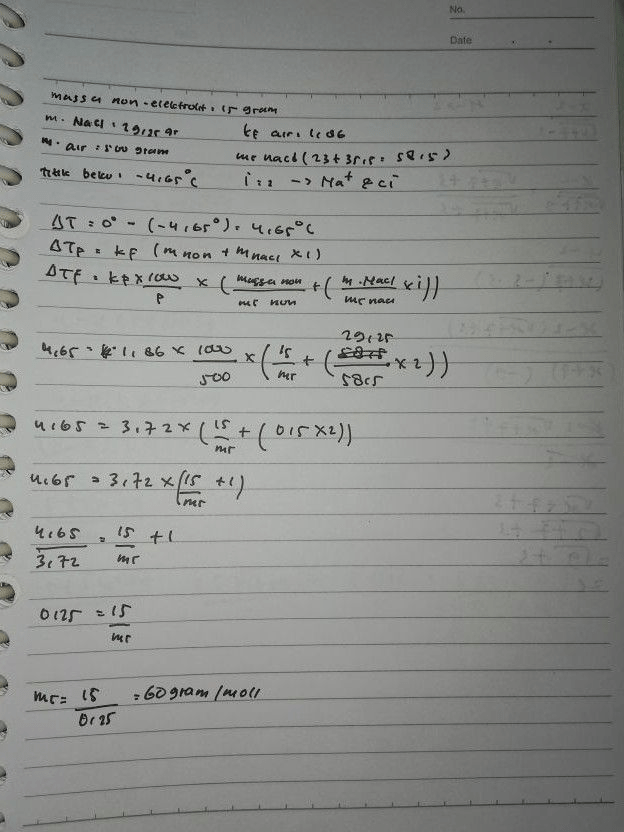 No.
Date
massa non-elektrolit : 15 gram
m. NaCl : 29,25 gr kf air : 1,86
m. air : 500 gram mr nacl (23 + 35,5 = 58,5)
titik beku : -4,65°C i = 2 -> Na+ & Cl-
ΔT = 0° - (-4,65°) = 4,65°C
ΔTf = kf (m non + m nacl × i)
ΔTf = kf × 1000/p × (massa non/mr non + (m. Nacl/mr nacl × i))
4,65 = 1,86 × 1000/500 × (15/mr + (29,25/58,5 × 2))
4,65 = 3,72 × (15/mr + (0,5 × 2))
4,65 = 3,72 × (15/mr + 1)
4,65/3,72 = 15/mr + 1
0,25 = 15/mr
mr = 15/0,25 = 60 gram/moll